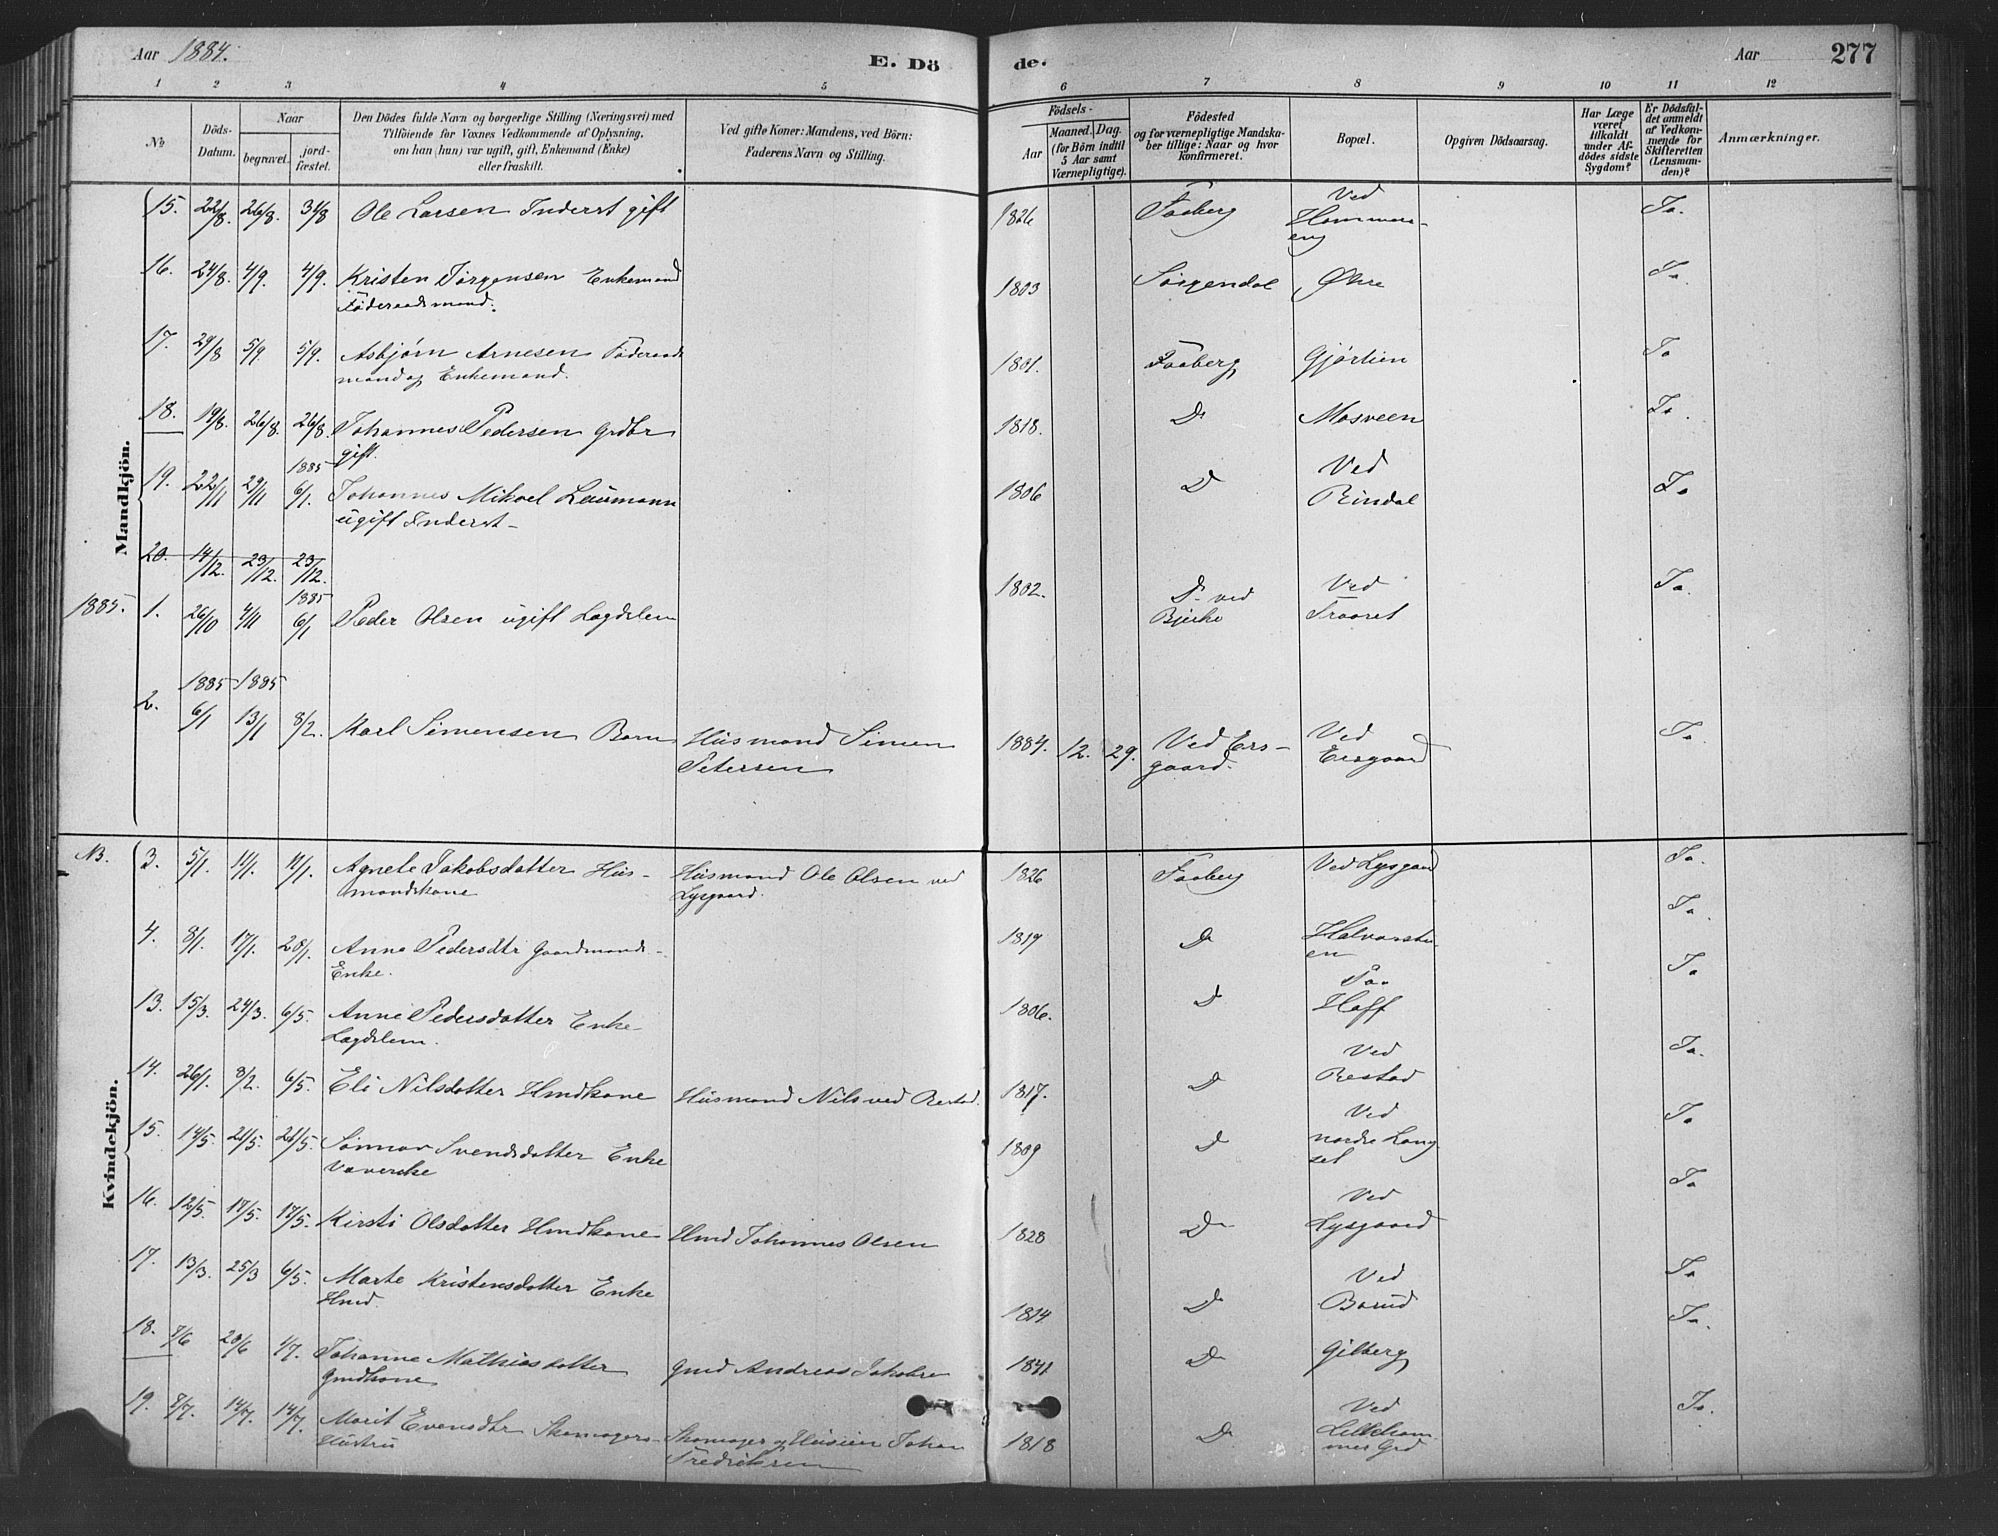 Aar 1884. E. Dö de. Aar 277
1 2 3 4 5 6 7 8 9 10 11 12
No
Döds-Datum.
Naar
begravet.
jordfæstet.
Den Dödes fulde Navn og borgerlige Stilling (Næringsvei) med
Tilföiende for Voxnes Vedkommende af Oplysning,
om han (hun) var ugift, gift, Enkemand (Enke)
eller fraskilt.
Ved gifte Koner: Mandens, ved Börn:
Faderens Navn og Stilling.
Födsels-
Aar
Maaned. Dag.
(for Börn indtil
5 Aar samt
Værnepligtige).
Födested
og for værnepligtige Mandska-
ber tillige: Naar og hvor
konfirmeret.
Bopæl.
Opgiven Dödsaarsag.
Har Læge
været
tilkaldt
under Af-
dödes sidste
Sygdom?
Er Dödsfal-
det anmeldt
af Vedkom-
mende for
Skifteretten
(Lensman-
den)?
Anmærkninger.
Mandkjön.
15. 22/8 26/8. 31/8 Ole Larsen Inderst gift 1826 Faaberg Ved Hammer-eng Ja.
16. 24/8. 4/9. 4/9. Kristen Jörgensen Enkemand 1803 Sörgendal Öhre Ja.
Föderaadsmand.
17. 29/8 5/9. 5/9. Asbjörn Arnesen Föderaads 1801. Faaberg Gjörlien Ja
mand og Enkemand.
18. 19/8. 26/8. 26/8. Johannes Pedersen Grdbr 1818. Do Mosveen Ja.
gift.
19. 22/11 29/11 1885 6/1. Johannes Mikael Laumann 1806 D Ved Rindal Ja
ugift Inderst-
20. 14/12. 23/12. 23/12.
1885. 1. 26/10 4/11 1885 6/1 Peder Olsen ugift Lægdslem 1802. D. ved Bjerke Ved Traaset Ja.
2. 1885 6/1 1885 13/1 8/2. Karl Simensen Barn Husmand Simen 1884. 12. 29. Ved Ers- Ved Ja
Petersen gaard. Ersgaard
Kvindekjön.
NB. 3. 5/1. 11/1. 11/1. Agnete Jakobsdatter Hus- Husmand Ole Olsen ved 1826 Faaberg Ved Lysgaard Ja.
mandskone Lysgaard.
4. 8/1. 17/1. 28/1. Anne Pedersdtr Gaardmands- 1819 Do Halvorsve- Ja.
Enke. en
13. 15/3. 24/3. 6/5. Anne Pedersdatter Enke- 1806. D Paa Hoff Ja
Lægdslem.
14. 26/1. 8/2. 6/5. Eli Nilsdatter Hmdkone Husmand Nils ved Restad. 1817. D Ved Restad Ja.
15. 14/5. 21/5. 21/5. Sönnov Svendsdatter Enke 1809 D Ved nordre Lang-set Ja
16. 12/5. 17/5. 17/5. Kirsti Olsdatter Hmdkone Hmd Johannes Olsen 1828 Do Ved Lysgaard Ja
17. 13/3. 25/3 6/5. Marte Kristensdatter Enke 1814 D Ved Ja
Hmd.
18. 7/6 20/6 1/7. Johanne Mathiasdatter Gmd Andreas Jakobsen 1841 Do Gilberg Ja.
Gmdkone
19. 7/7. 14/7. 14/7. Marit Evensdtr Skomagers- Skomager og Huseier Johan 1818 D Ved Lilleham- Ja.
Hustru Fredriksen mer Grd